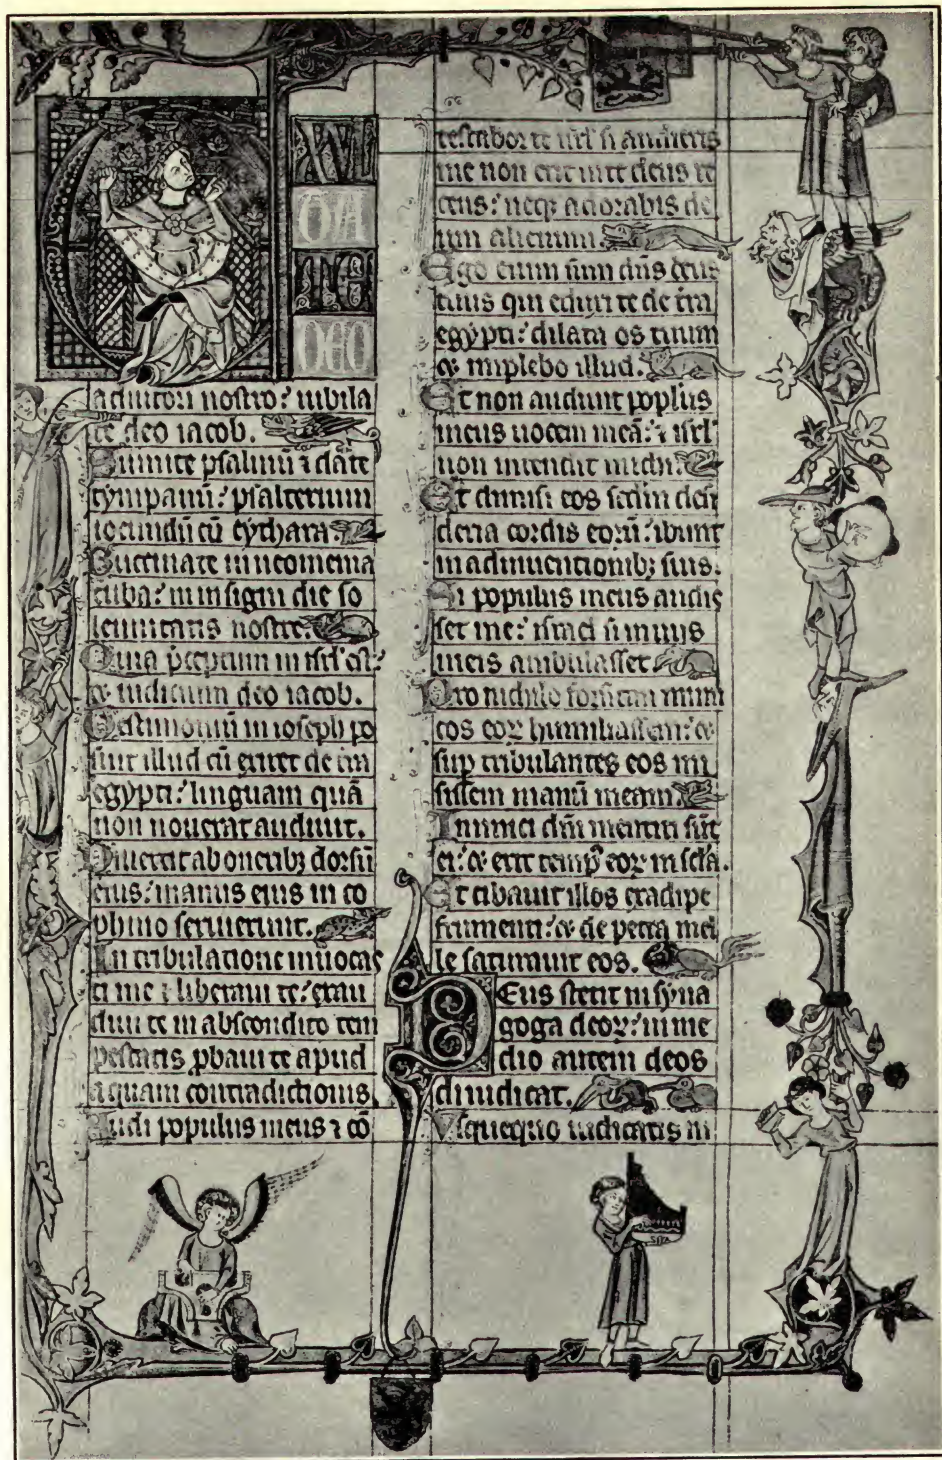 EXVL
TA
TE
DEO
adiutori nostro: iubila
te deo iacob.
Sumite psalmū ⁊ date
tympanū: psalterium
iocundū cū cythara.
Buccinate in neomenia
tuba: in insigni die so
lennitatis nostre.
Quia p̄ceptum in isrl̄ est:
⁊ iudicium deo iacob.
Testimoniū in ioseph po
suit illud cū exiret de tr̄a
egypti: linguam quā
non nouerat audiuit.
Diuertit ab oneribꝫ dorsū
eius: manus eius in co
phino seruierunt.
In tribulatione inuocas
ti me ⁊ liberaui te: exau
diui te in abscondito tem
pestatis ꝓbaui te apud
aquam contradictionis.
Audi populus meus ⁊ cō
testabor te isrl̄ si audieris
me non erit in te deus re
cens: neqꝫ adorabis de
um alienum.
Ego enim sum dn̄s deus
tuus qui eduxi te de tr̄a
egypti: dilata os tuum
⁊ implebo illud.
Et non audiuit popl̄us
meus uocem meā: ⁊ isrl̄
non intendit michi.
Et dimisi eos scd̄m desi
deria cordis eorū: ibunt
in adinuentionibꝫ suis.
Si populus meus audis
set me: israel si in uiis
meis ambulasset.
Pro nichilo forsitan inimi
cos eoꝝ humiliassem: ⁊
suꝑ tribulantes eos mi
sissem manū meam.
Inimici dn̄i mentiti sūt
ei: ⁊ erit temp⁹ eoꝝ in scl̄a.
Et cibauit illos ex adipe
frumenti: ⁊ de petra mel
le saturauit eos.
Deus stetit in syna
goga deoꝝ: in me
dio autem deos
diiudicat.
Vsquequo iudicatis in